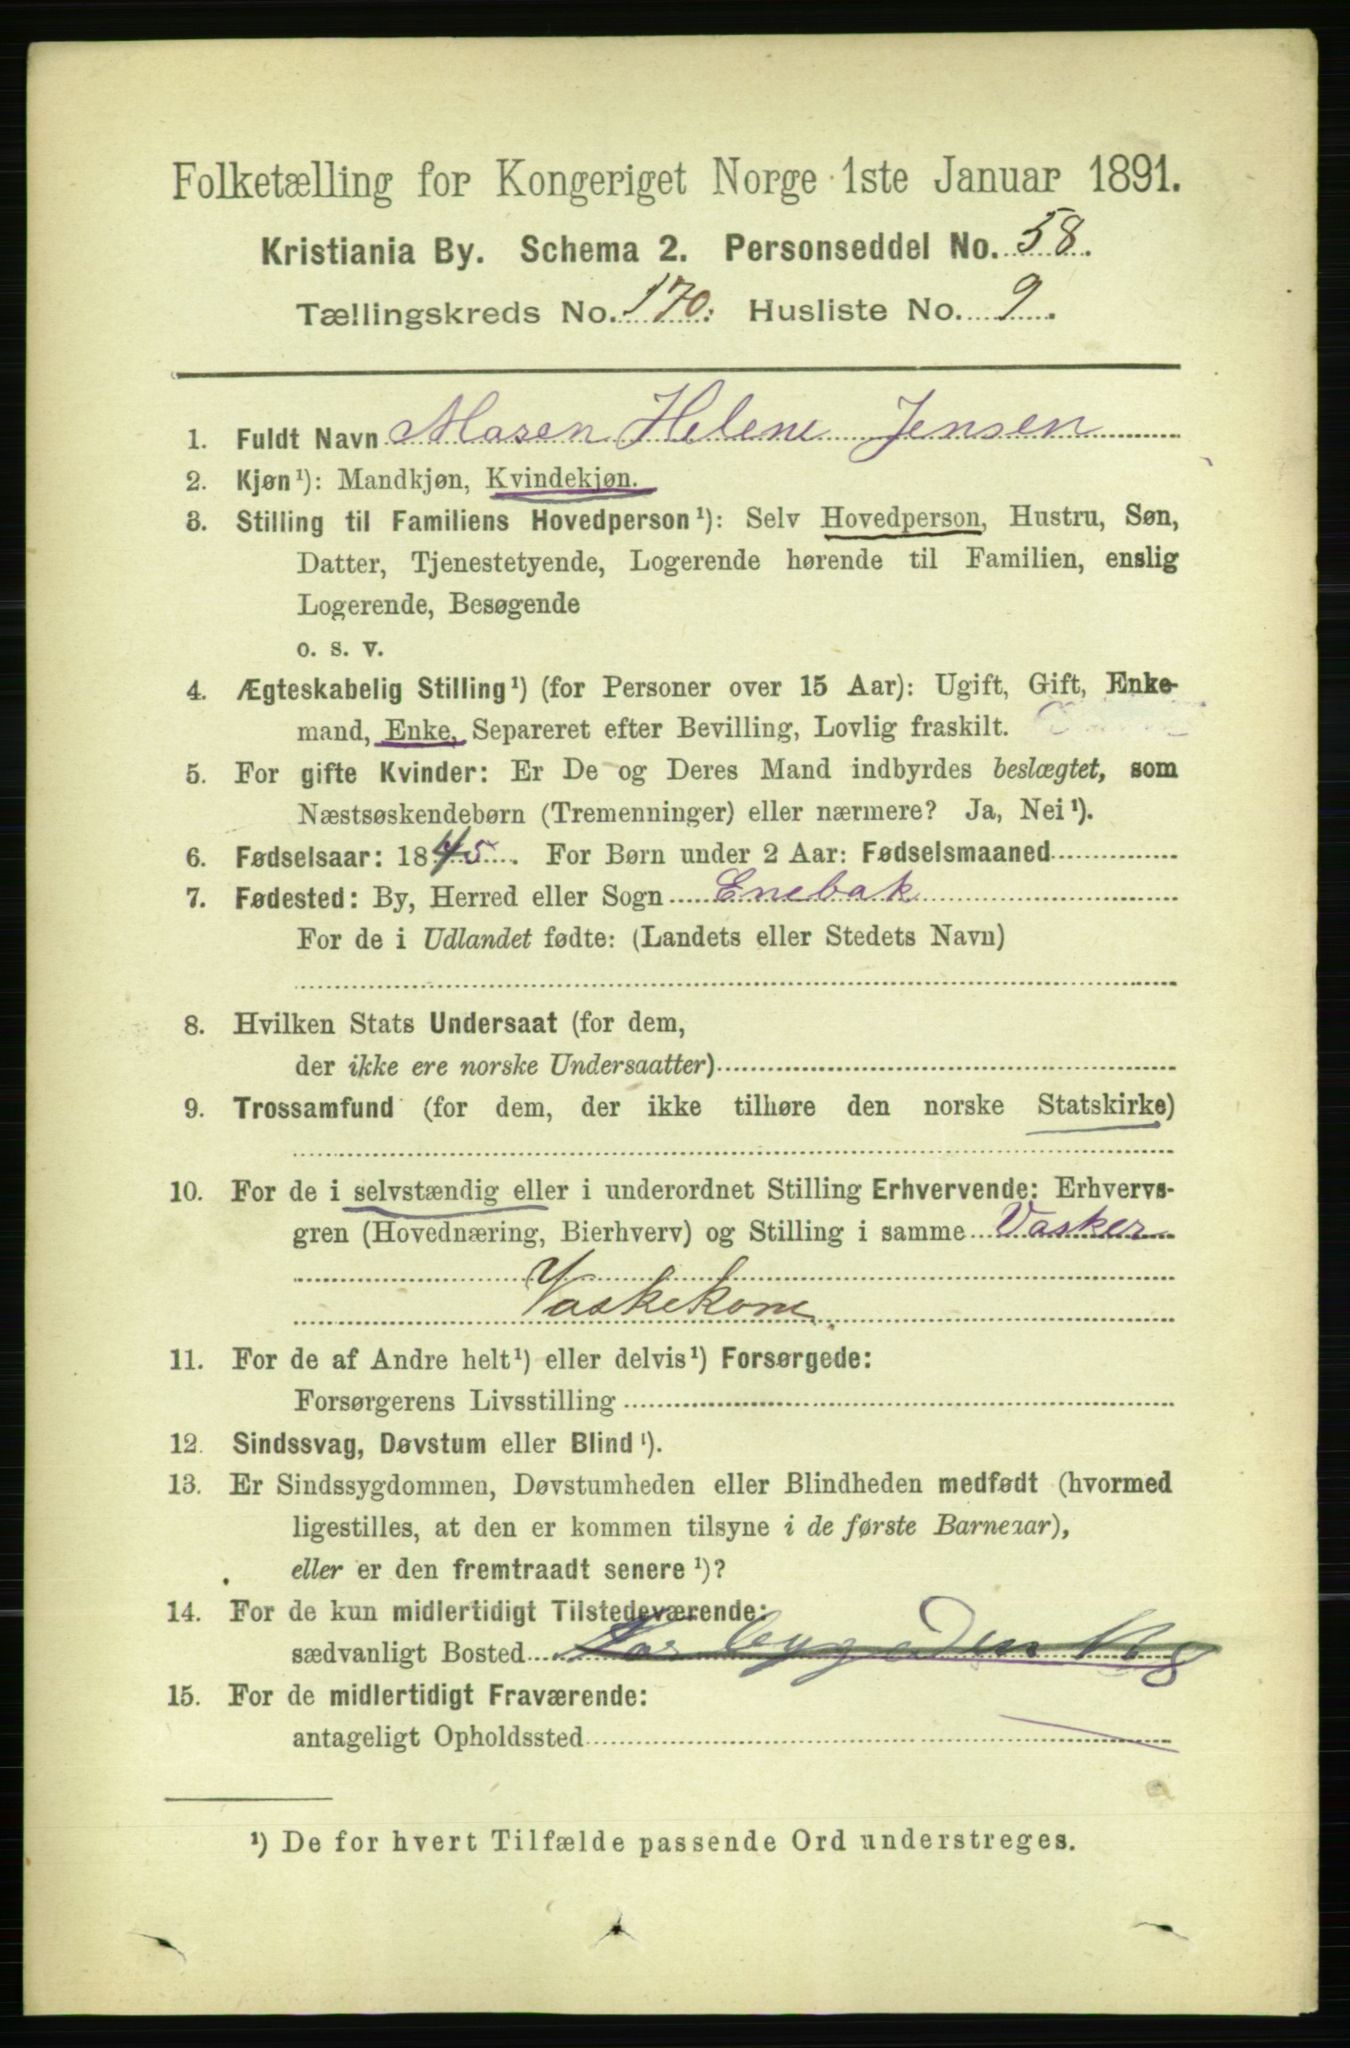 Folketælling for Kongeriget Norge 1ste Januar 1891.
Kristiania By. Schema 2. Personseddel No. 58.
Tællingskreds No. 170. Husliste No. 9.
1. Fuldt Navn Maren Helene Jensen
2. Kjøn¹): Mandkjøn, Kvindekjøn.
3. Stilling til Familiens Hovedperson¹): Selv Hovedperson, Hustru, Søn,
Datter, Tjenestetyende, Logerende hørende til Familien, enslig
Logerende, Besøgende
o. s. v.
4. Ægteskabelig Stilling¹) (for Personer over 15 Aar): Ugift, Gift, Enke-
mand, Enke, Separeret efter Bevilling, Lovlig fraskilt.
5. For gifte Kvinder: Er De og Deres Mand indbyrdes beslægtet, som
Næstsøskendebørn (Tremenninger) eller nærmere? Ja, Nei¹).
6. Fødselsaar: 1845. For Børn under 2 Aar: Fødselsmaaned
7. Fødested: By, Herred eller Sogn Enebak
For de i Udlandet fødte: (Landets eller Stedets Navn)
8. Hvilken Stats Undersaat (for dem,
der ikke ere norske Undersaatter)
9. Trossamfund (for dem, der ikke tilhøre den norske Statskirke)
10. For de i selvstændig eller i underordnet Stilling Erhvervende: Erhvervs-
gren (Hovednæring, Bierhverv) og Stilling i samme Vasker
Vaskekone.
11. For de af Andre helt¹) eller delvis¹) Forsørgede:
Forsørgerens Livsstilling
12. Sindssvag, Døvstum eller Blind¹).
13. Er Sindssygdommen, Døvstumheden eller Blindheden medfødt (hvormed
ligestilles, at den er kommen tilsyne i de første Barneaar),
eller er den fremtraadt senere¹)?
14. For de kun midlertidigt Tilstedeværende:
sædvanligt Bosted
15. For de midlertidigt Fraværende:
antageligt Opholdssted
¹) De for hvert Tilfælde passende Ord understreges.